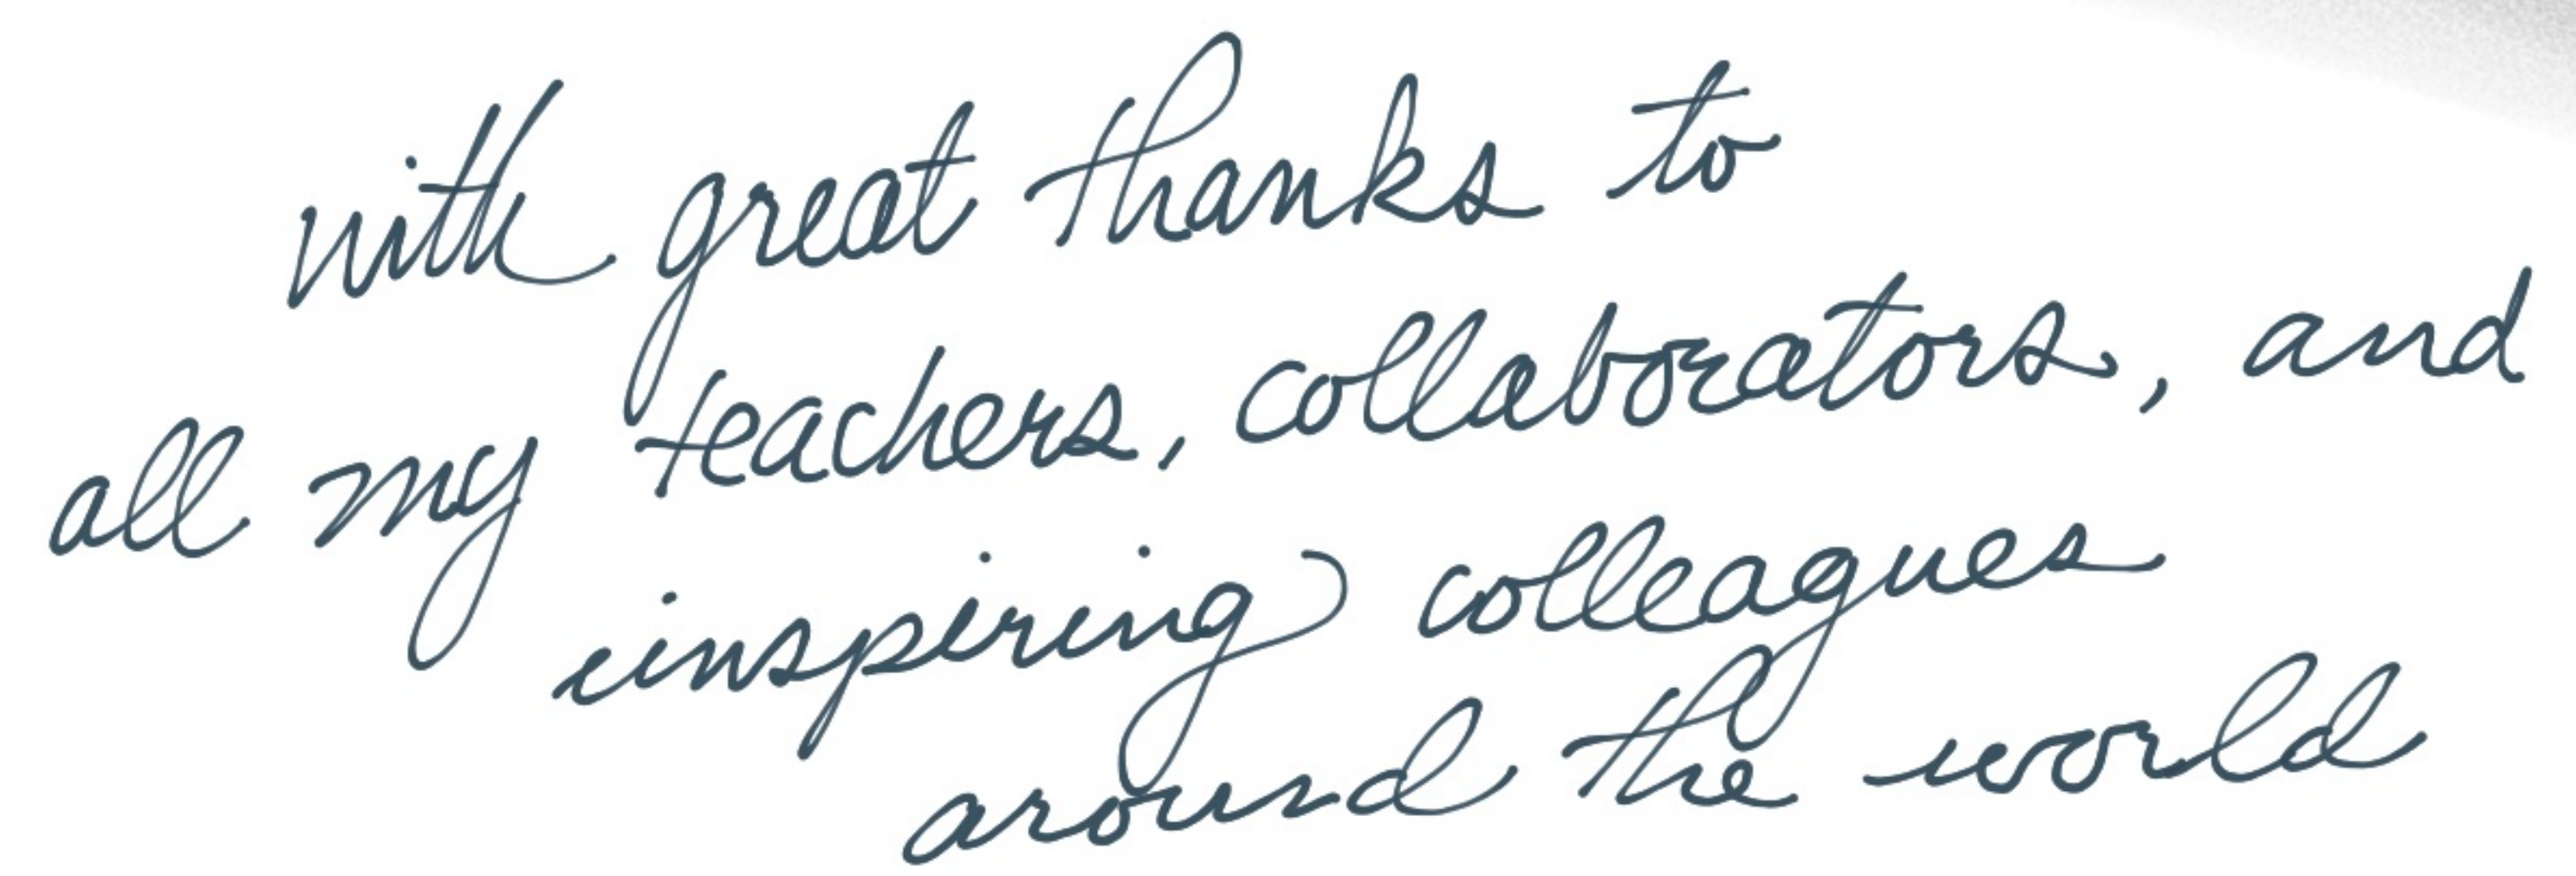 with great thanks to
all my teachers, collaborators, and
inspiring colleagues
around the world